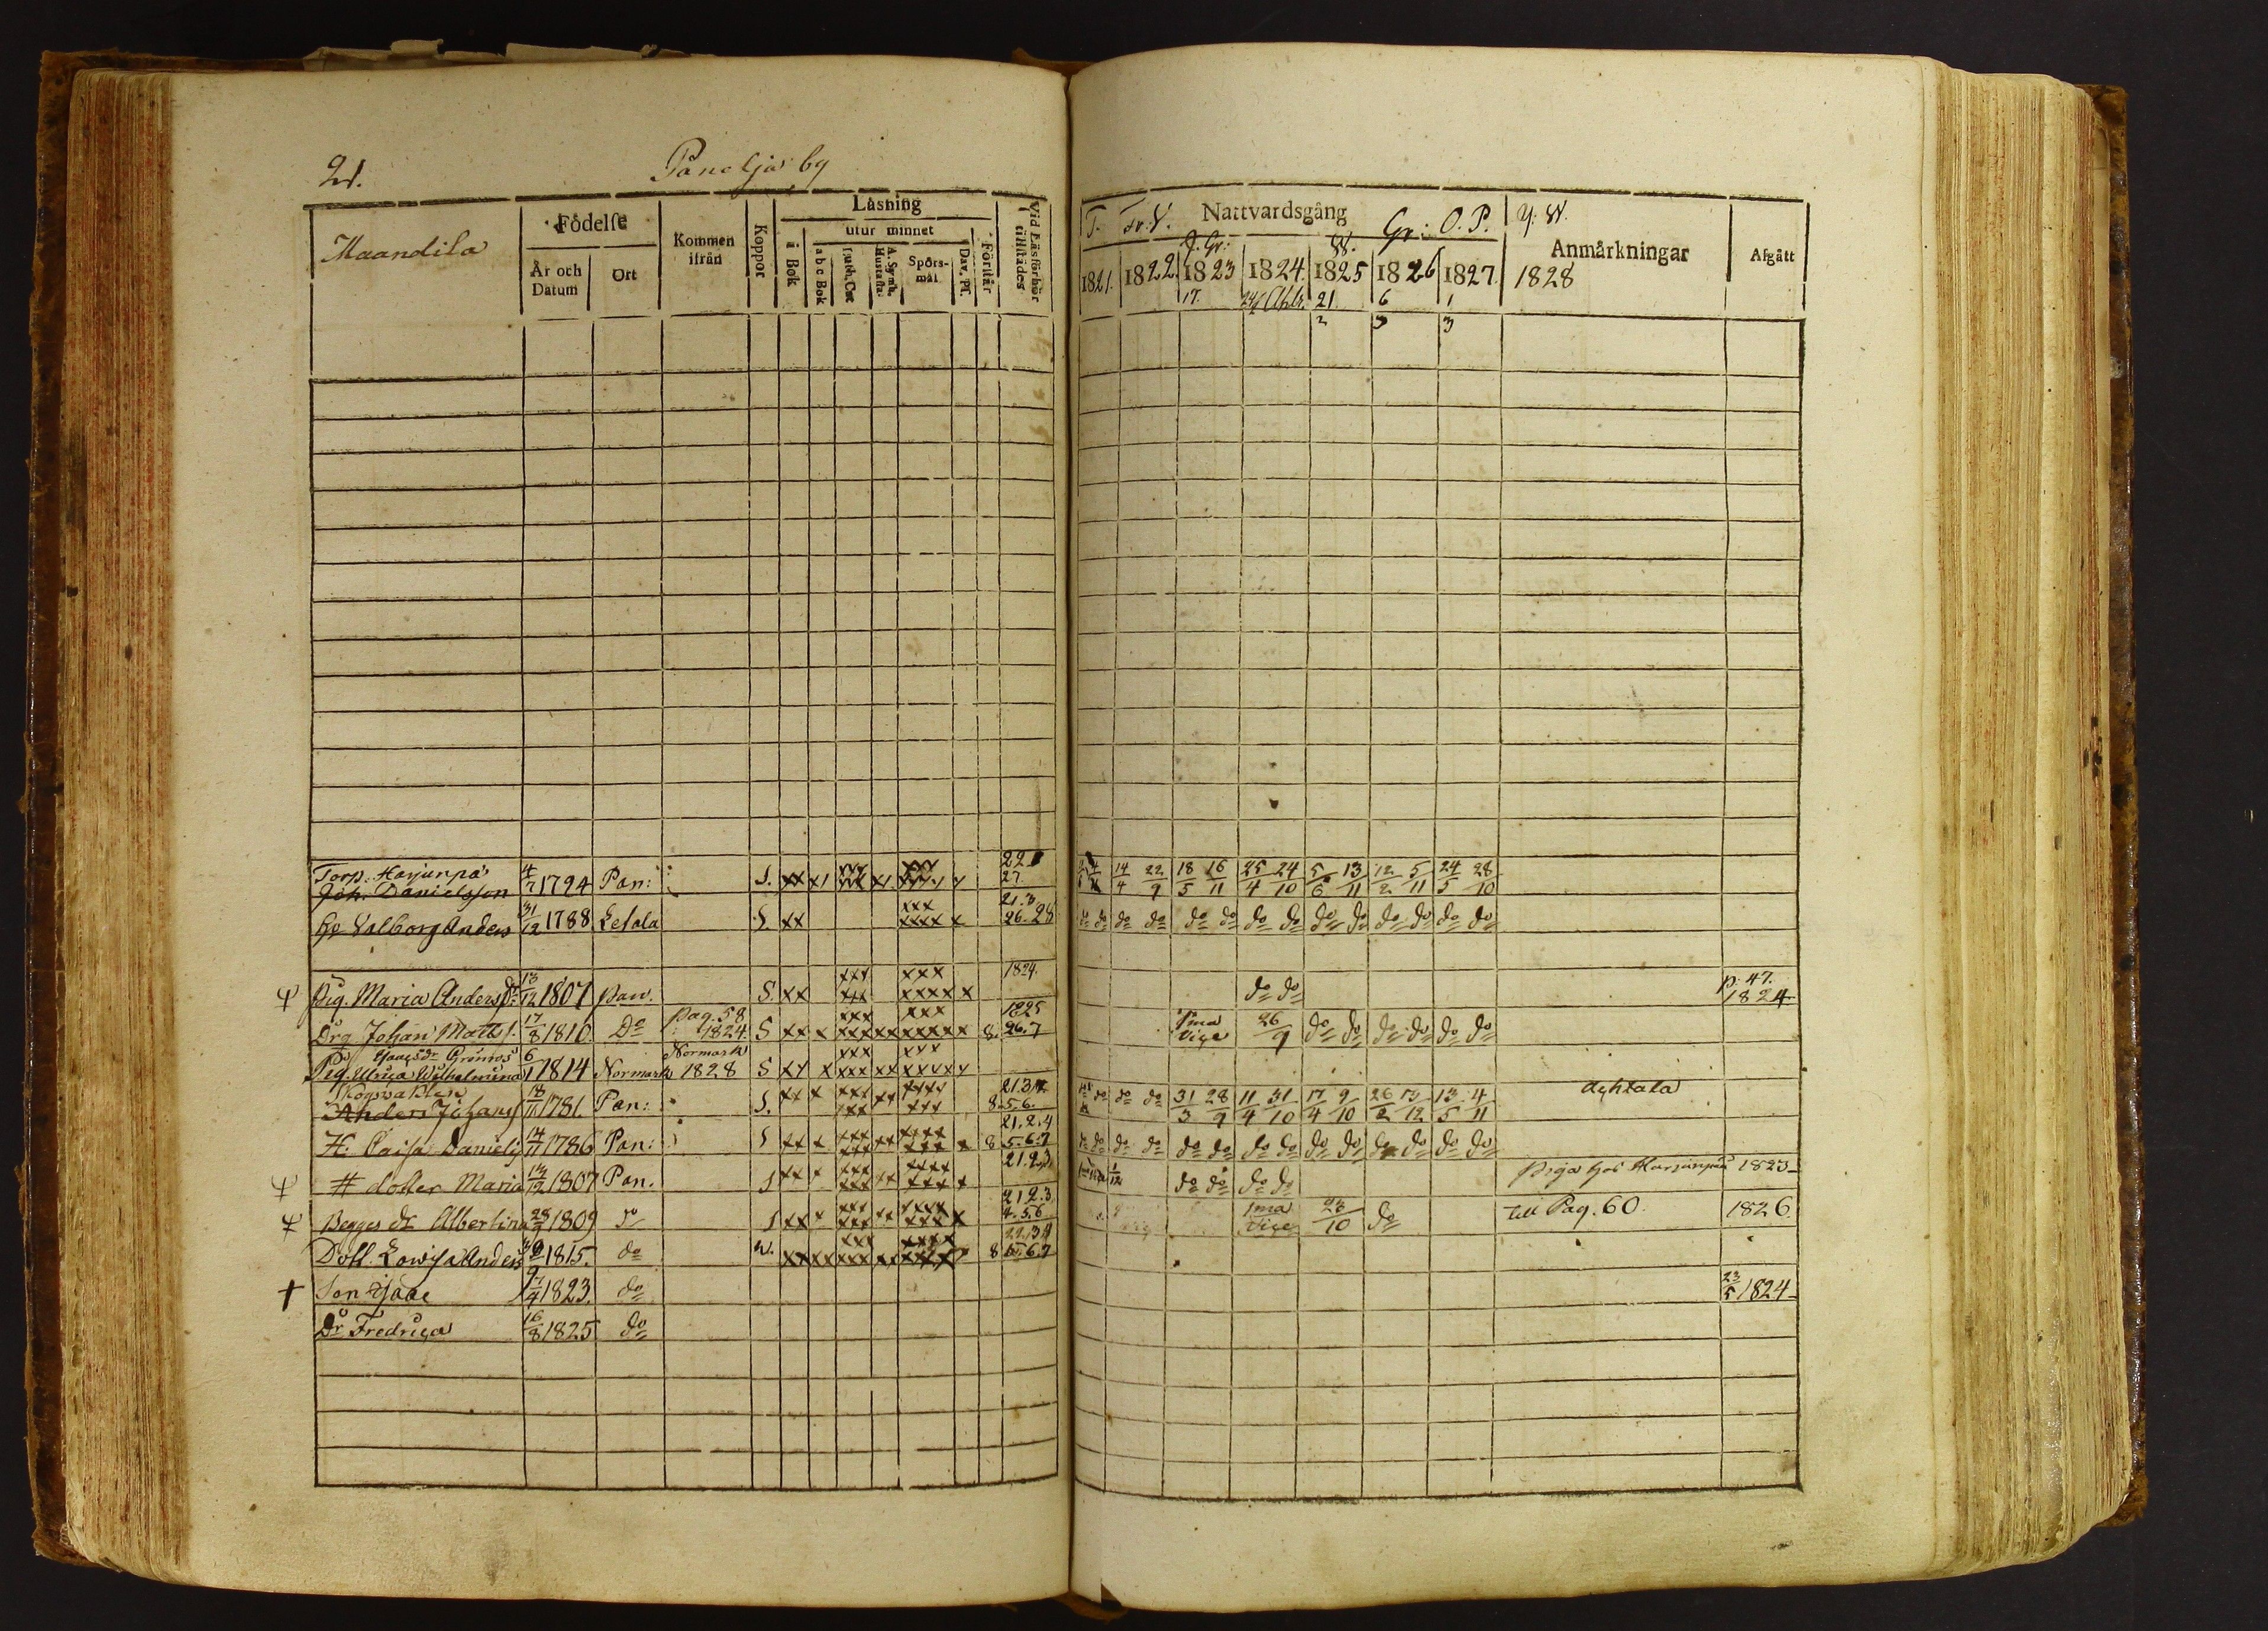 21.
Panelja by
Maandila
Födelse
År och Datum
Ort
Kommen ifrån
Koppor
Läsning
i Bok
utur minnet
a b c Bok
Luth. Cat.
A. Symb. Hustafla
Spörs-mål
Dav. Ps.
Förstår
Vid Läsförhör tillstädes
T. Fr: V. Nattvardsgång Gr: O. P. Y: W.
J. Gr: W.
1821. 1822. 1823 1824. 1825 1826 1827. 1828
Anmärkningar
Afgått
17. 21. 6 1
2 3 3
Torp: Harjunpä 4/7 1794 Pan: S. xx 22 27
Joh. Danielsson
14/4 22/9 18/5 16/11 25/4 24/10 5/6 13/11 12/2 5/11 24/5 28/10
Hu Valborg Anders 31/12 1788 Lesala S. xx xxx xxxx x 21.3 26.28
do do do do do do do do do do do do do do
Pig. Maria Anders dr 13/12 1807 Pan. S. xx xxx xxx xxx xxxx x 1824.
do do p. 47. 1824
Drg Johan Matts s. 17/8 1810. Do pag. 58 1824. S xx x xxx xxx xx xxx xxxxx x 8. 1825 26.7
1ma Vice 26/9 do do do do do do
Jaacsdr Grönros Normark
Pig. Ulrica Wilhelmina 6/1 1814 Normark 1828 S xx x xxx xxx xx xxx xxxx
Anders Johans s 18/11 1781. Pan: S. xx x xxx xxx xx xxxx xxx 8. 5.6.
do do do 31/3 28/9 11/4 31/10 17/4 9/10 26/2 13/12 13/5 4/11
H. Caisa Daniels 14/11 1786 Pan: S xx x xxx xxx xx xxxx xxx x 8 21.2.4 5.6.7
do do do do do do do do do do do do do do
# dotter Maria 13/12 1807 Pan. S xx x xxx xxx xx xxxx xxxx x 21.2.3
1/12 do do do do Piga hos Harjunpää 1823
Begges dr Albertina 28/2 1809 do S xx x xxx xxx xx xxxx xxxx x 212.3 4.5.6
1ma Vice 23/10 do till Pag. 60. 1826.
Dott. Lovisa Anders 1815. do W. 8 22.34 5.6.7
† Son Jaac 1823. do 23/5 1824
Dr Fredrica 16/8 1825 do